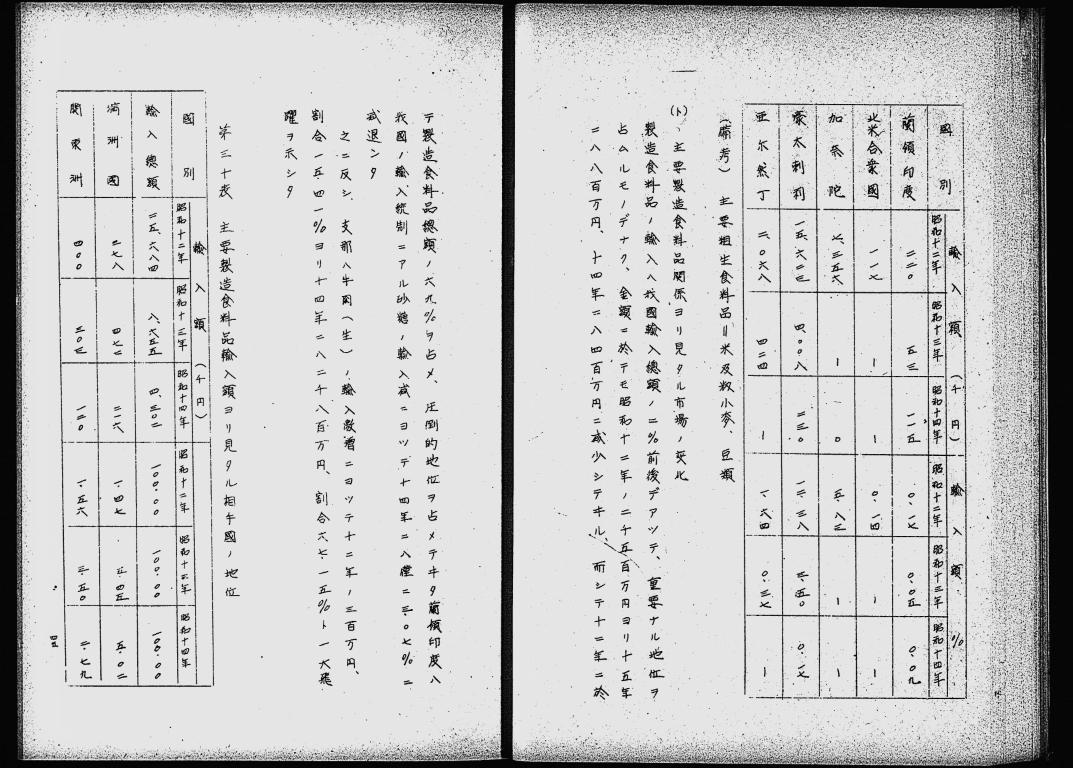 輸入額(千円) 輸入額%
國別 昭和十二年 昭和十三年 昭和十四年 昭和十二年 昭和十三年 昭和十四年
蘭領印度 二二〇 五三 一一五 〇.一七 〇.〇五 〇.〇九
北米合衆國 一一七 ー ー 〇.一四 ー ー
加奈陀 七、三五六 ー 〇 五.八三 ー ー
濠太利利 一五、六二三 四、〇〇八 二三〇 一二.三八 三.五〇 〇.一七
亜尓然丁 二、〇六八 四二四 ー 一.六四 〇.三七 ー
(備考) 主要粗生食料品=米及籾小麦、豆類
(ト)、主要製造食料品関係ヨリ見タル市場ノ変化
製造食料品ノ輸入ハ我國輸入總額ノ二%前後デアツテ、重要ナル地位ヲ
占ムルモノデナク、金額ニ於テモ昭和十二年ノ二千五百万円ヨリ十三年
ニハ八百万円、十四年ニハ四百万円ニ減少シテヰル、而シテ十二年ニ於
テ製造食料品總額ノ六九%ヲ占メ、圧倒的地位ヲ占メテヰタ蘭領印度ハ
我國ノ輸入統制ニアル砂糖ノ輸入減ニヨツテ十四年ニハ僅ニ三.〇七%ニ
減退シタ
之ニ反シ、支那ハ牛肉(生)ノ輸入激増ニヨツテ十二年ノ三百万円、
割合一五.四一%ヨリ十四年ニハ二千八百万円、割合六七.一五%ト一大飛
躍ヲ示シタ
第三十表 主要製造食料品輸入額ヨリ見タル相手國ノ地位
輸入額(千円)
國別 昭和十二年 昭和十三年 昭和十四年 昭和十二年 昭和十三年 昭和十四年
輸入總額 二五、六八四 八、六五五 四、三〇二 一〇〇.〇〇 一〇〇.〇〇 一〇〇.〇〇
満洲國 三七八 四七二 二一六 一.四七 五.四五 五.〇二
関東洲 四〇〇 三〇三 一二〇 一.五六 三.五〇 二.七九
四五